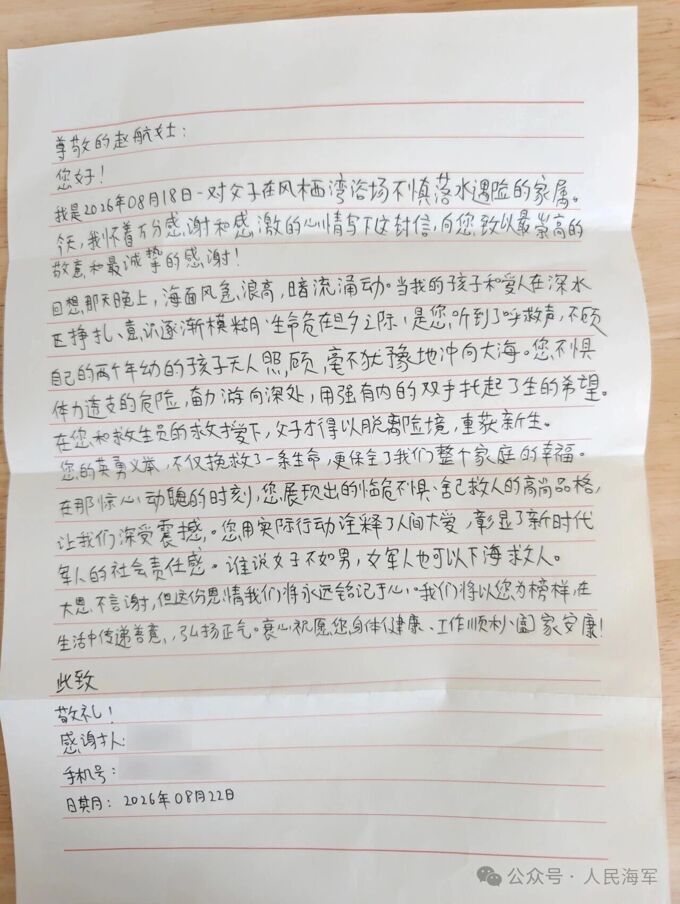 尊敬的赵航女士：
您好！
我是2026年08月18日一对父子在风栖湾浴场不慎落水遇险的家属。
今天，我怀着万分感谢和感激的心情写下这封信，向您致以最崇高的
敬意和最诚挚的感谢！
回想那天晚上，海面风急浪高，暗流涌动。当我的孩子和爱人在深水
区挣扎、意识逐渐模糊、生命危在旦夕之际，是您，听到了呼救声，不顾
自己的两个年幼的孩子无人照顾，毫不犹豫地冲向大海。您不惧
体力透支的危险，奋力游向深处，用强有力的双手托起了生的希望。
在您和救生员的救援下，父子才得以脱离险境，重获新生。
您的英勇义举，不仅挽救了一条生命，更保全了我们整个家庭的幸福。
在那惊心动魄的时刻，您展现出的临危不惧、舍己救人的高尚品格，
让我们深受震撼。您用实际行动诠释了人间大爱，彰显了新时代
军人的社会责任感。谁说女子不如男，女军人也可以下海救人。
大恩不言谢，但这份恩情我们将永远铭记于心。我们将以您为榜样，在
生活中传递善意，弘扬正气。衷心祝愿您身体健康、工作顺利、阖家安康！
此致
敬礼！
感谢人：
手机号：
日期：2026年08月22日
公众号·人民海军